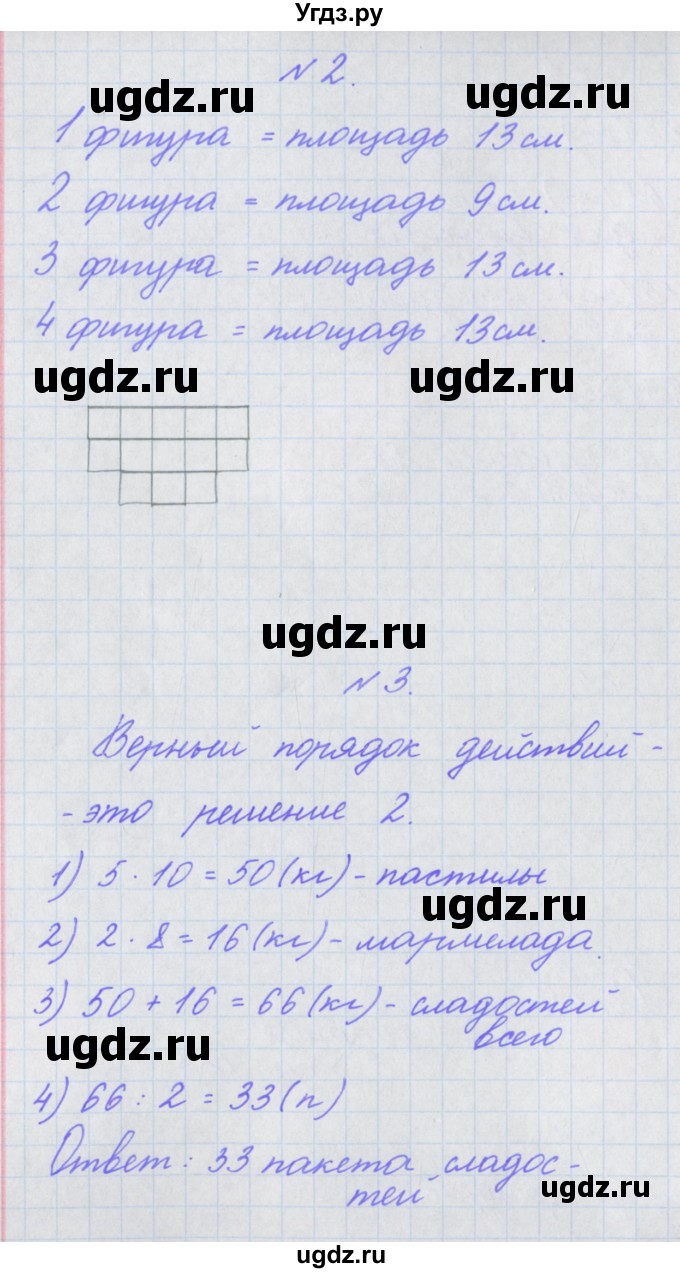 Угдз.ру
№ 2.
ugdz.ru
ugdz.ru
1 фигура = площадь 13 см.
2 фигура = площадь 9 см.
3 фигура = площадь 13 см.
4 фигура = площадь 13 см.
ugdz.ru
ugdz.ru
ugdz.ru
№ 3.
Верный порядок действий -
- это решение 2.
1) 5 · 10 = 50 (кг) - пастилы
ugdz.ru
2) 2 · 8 = 16 (кг) - мармелада.
3) 50 + 16 = 66 (кг) - сладостей
всего
ugdz.ru
4) 66 : 2 = 33 (п)
Ответ : 33 пакета сладос -
тей
ugdz.ru
ugdz.ru